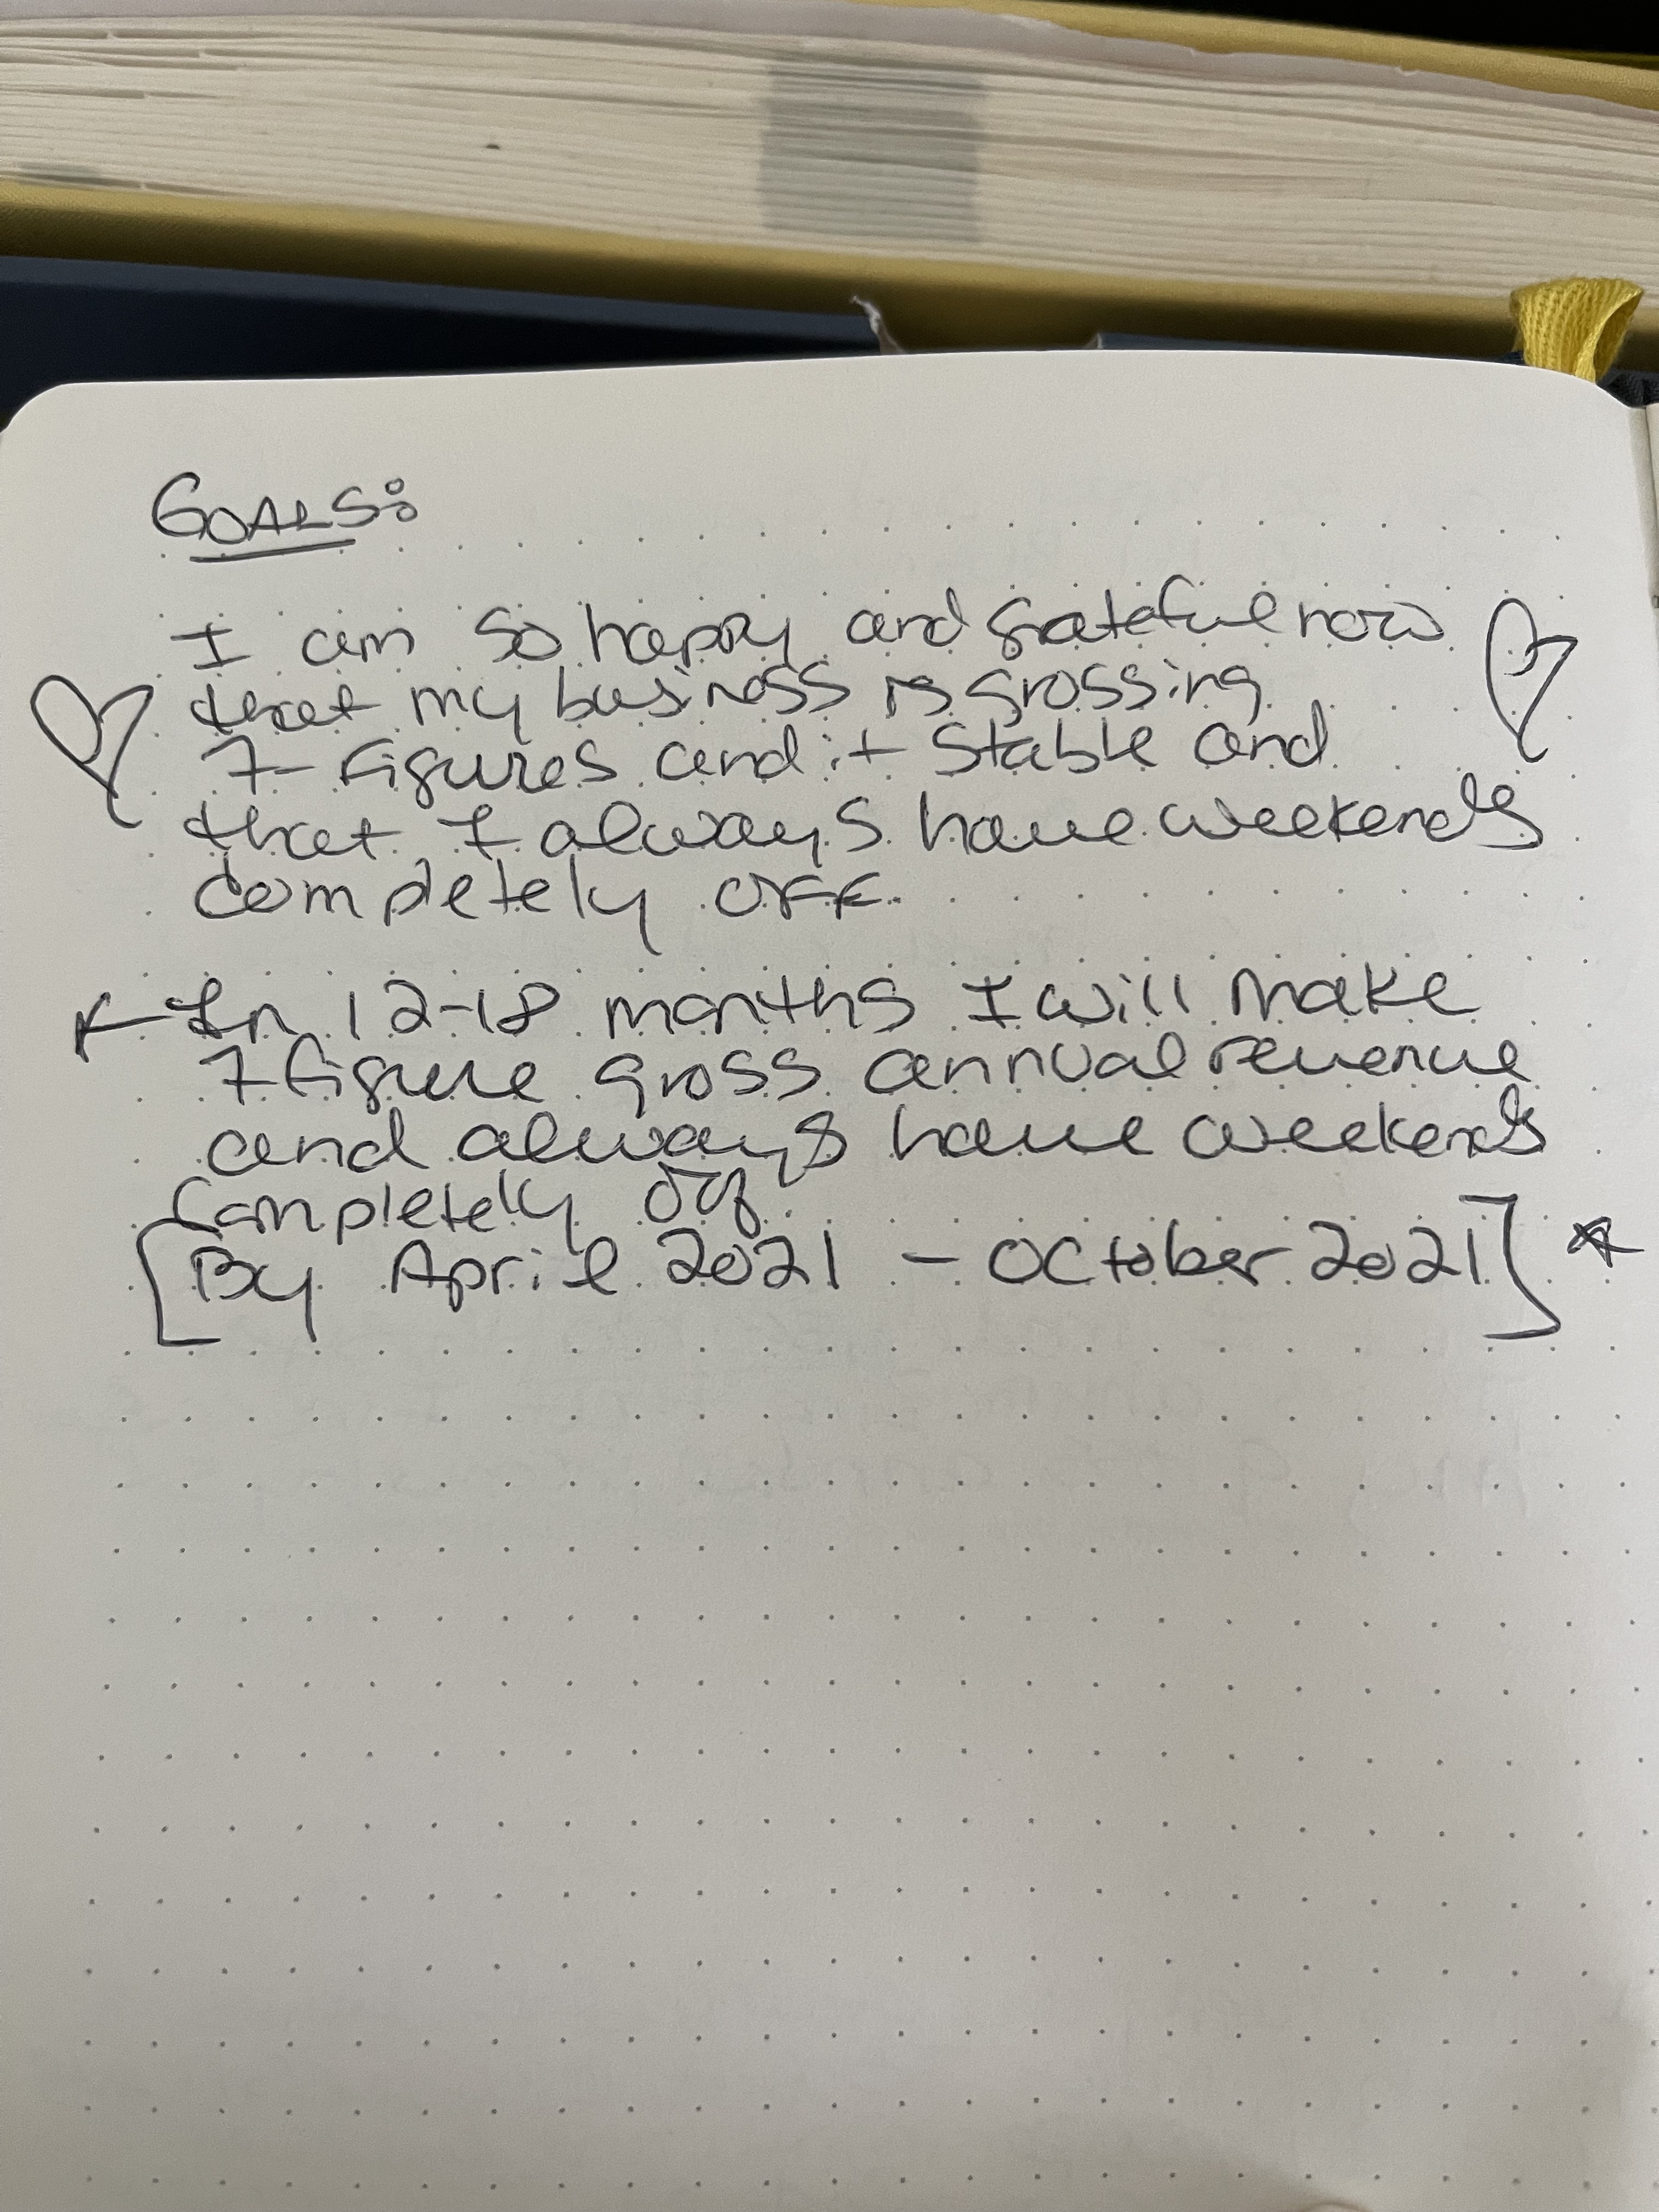 GOALS:
I am so happy and grateful now
that my business is grossing
7-figures and it stable and
that I always have weekends
completely off.
In 12-18 months I will make
7 figure gross annual revenue
and always have weekends
completely off
[By April 2021 - October 2021]